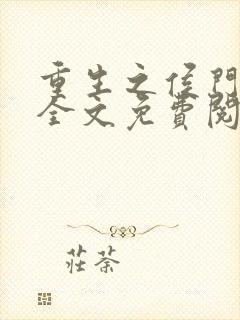 重生之侯門
全文免費閱
莊荼